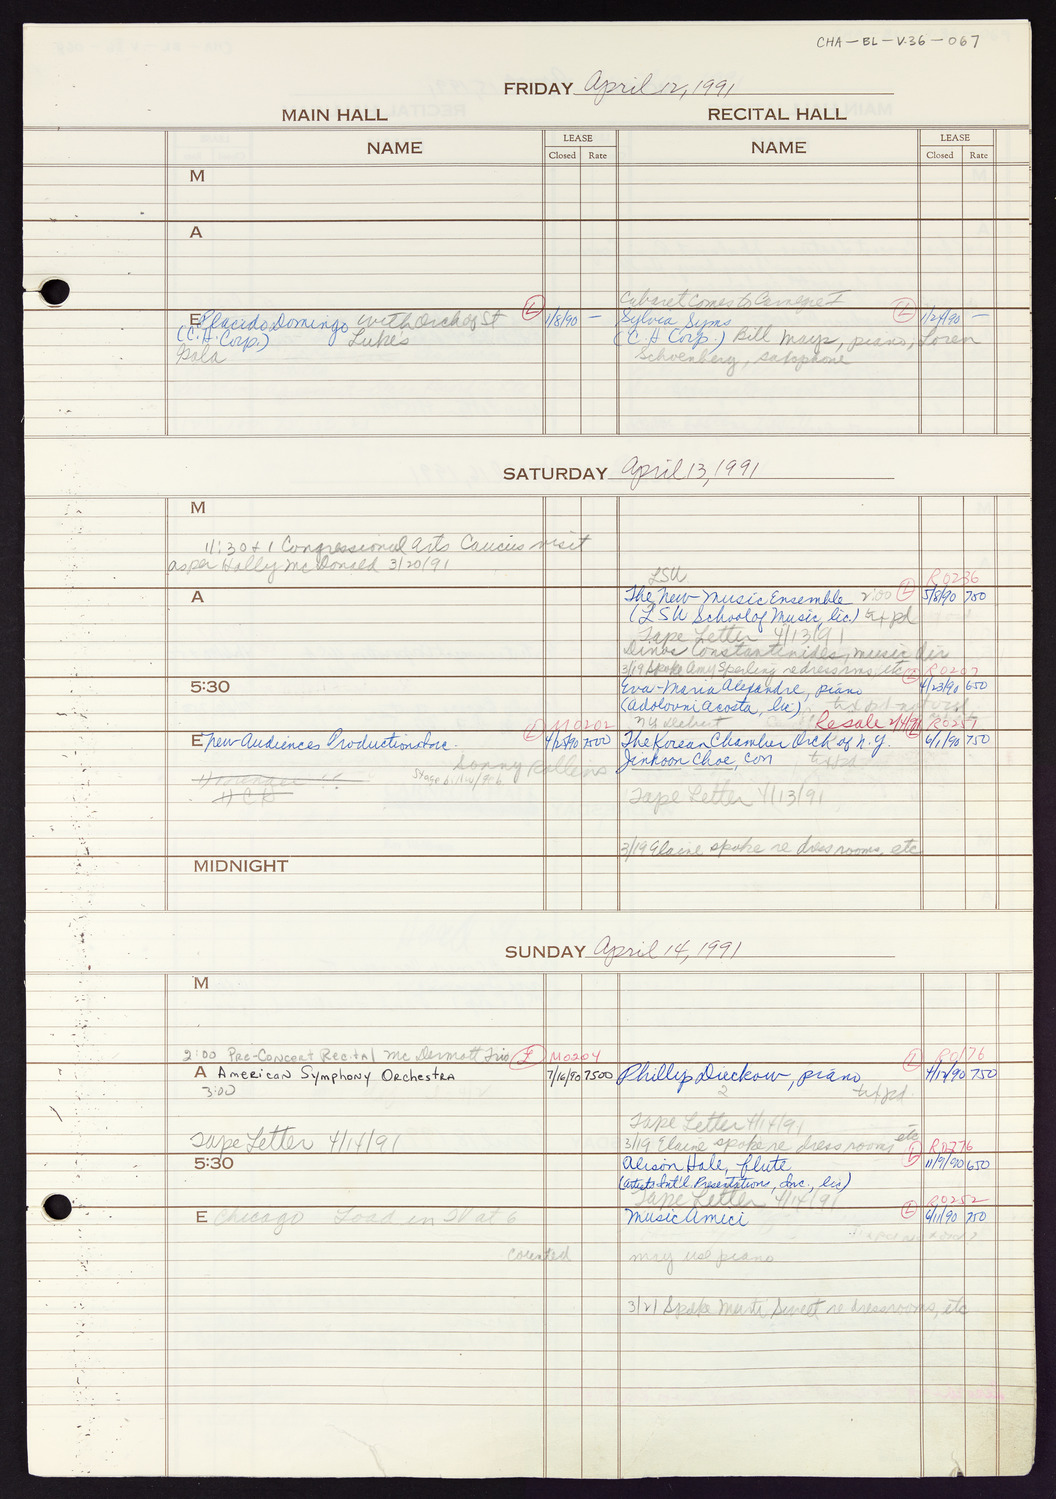 CHA-BL-V.36-067
FRIDAY April 12, 1991
MAIN HALL
RECITAL HALL
NAME
LEASE
Closed Rate
NAME
LEASE
Closed Rate
M
A
Cabaret Comes to Carnegie I
E Placido Domingo with Orch of St L 1/8/90 —
(C.H. Corp.) Lukes
Gala
Sylvia Syms L 1/24/90 —
(C.H. Corp.) Bill Mays, piano, Loren
Schoenberg, saxophone
SATURDAY April 13, 1991
M
11:30 + 1 Congressional Arts Caucus visit
as per Holly McDonald 3/20/91
LSU R0236
A
The New Music Ensemble 2:00 L 5/8/90 750
(LSU School of Music, lic.) tx pd
Tape Letter 4/13/91
Dinos Constantinides, music dir
3/19 Spoke Amy Sperling re dress rms etc R0207
5:30
Eva-Maria Alexandre, piano 4/23/90 650
(Adolovni Acosta, lic)
NY Debut Resale 2/4/91 L R0257
L M0202
E New Audiences Productions Inc. 4/25/90 7500
The Korean Chamber Orch of N.Y. 6/1/90 750
Jinkoon Choe, con tx pd
Sonny Rollins
Tape Letter 4/13/91
3/19 Elaine spoke re dress rooms, etc
MIDNIGHT
SUNDAY April 14, 1991
M
2:00 Pre-Concert Recital McDermott Trio L M0204
L R0176
A American Symphony Orchestra 7/16/90 7500
3:00
Phillip Dieckow, piano 4/12/90 750
2 tx pd.
Tape Letter 4/14/91
Tape Letter 4/14/91
3/19 Elaine spoke re dress rooms etc R0276
5:30
Alison Hale, flute L 11/9/90 650
(Artists Int'l. Presentations, Inc., lic)
Tape Letter 4/14/91 R0252
E Chicago Load in IV at 6
Music Amici L 6/11/90 750
may use piano
3/21 Spoke Marti Sweet re dressrooms, etc